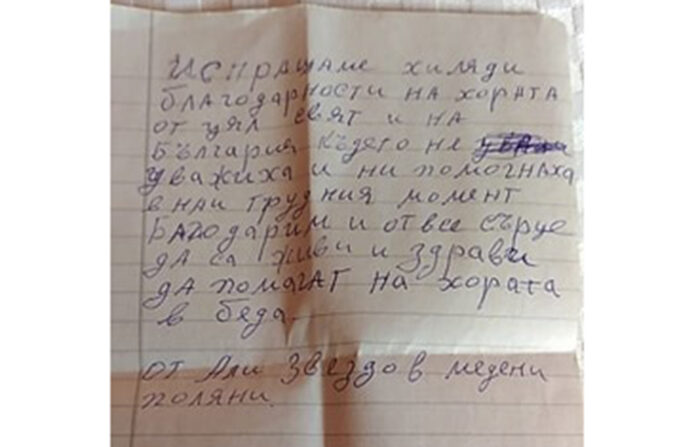 Испращаме хиляди
благодарности на хората
от цял свят и на
България където не
уважиха и ни помогнаха
в наи трудния момент
Багодарим и от все сърце
да са живи и здрави
да помагат на хората
в беда.
от Али Звездов медени
поляни.